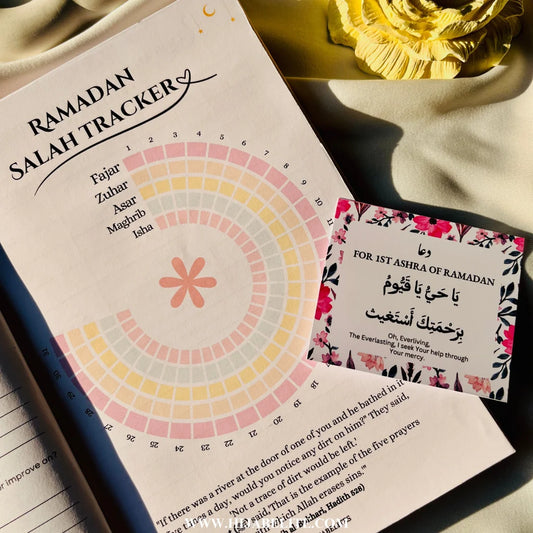 RAMADAN
SALAH TRACKER
Fajar
Zuhar
Asar
Maghrib
Isha
1 2 3 4 5 6 7 8 9 10 11
18
19
20
21
22
23
24
25
26
27
28
29
دعا
FOR 1ST ASHRA OF RAMADAN
يَا حَيُّ يَا قَيُّومُ
بِرَحْمَتِكَ أَسْتَغِيثُ
Oh, Everliving,
The Everlasting, I seek Your help through
Your mercy.
r improve on?
"If there was a river at the door of one of you and he bathed in it
times a day, would you notice any dirt on him?" They said,
'Not a trace of dirt would be left.'
said, 'That is the example of the five prayers
which Allah erases sins.'"
Hadith 528)
WWW.HIJABELLEE.COM